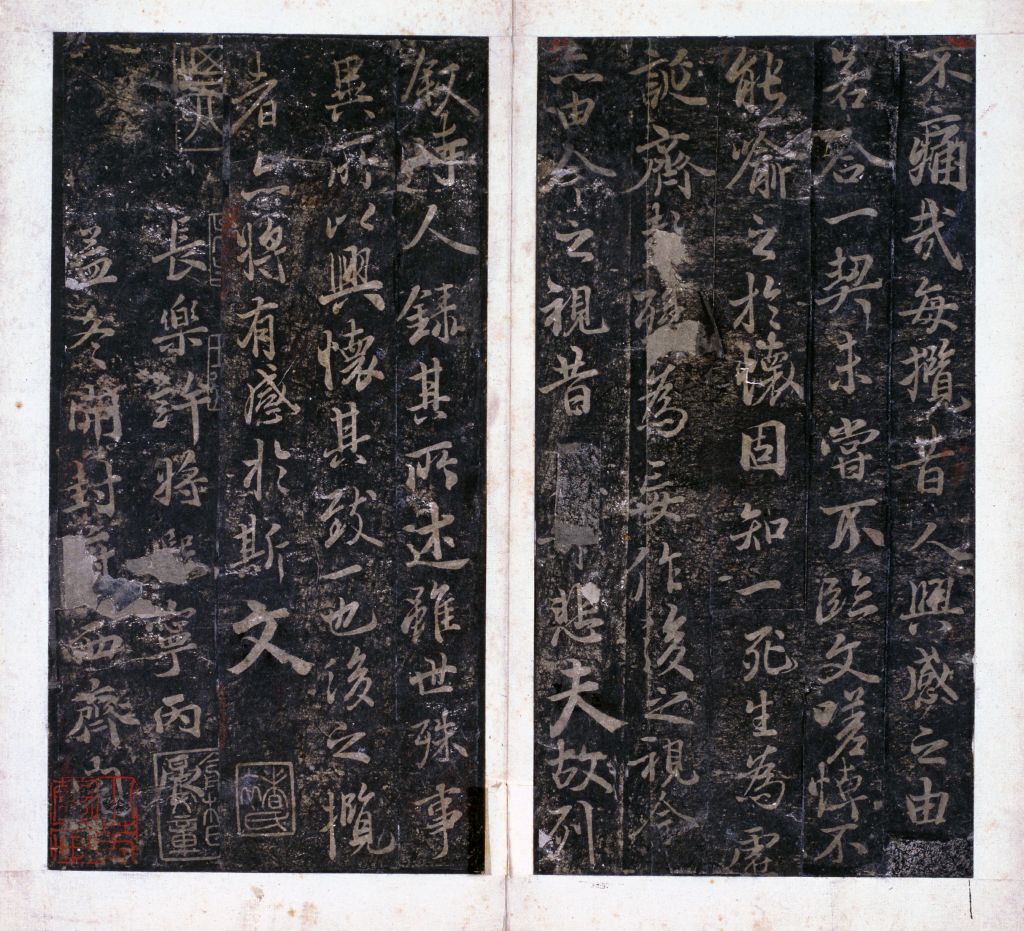 不痛哉每攬昔人興感之由
若合一契未嘗不臨文嗟悼不
能喻之於懷固知一死生為虛
誕齊彭殤為妄作後之視今
亦由今之視昔悲夫故列
敘時人錄其所述雖世殊事
異所以興懷其致一也後之攬
者亦將有感於斯文
長樂許將熙寧丙
孟冬開封府西齋